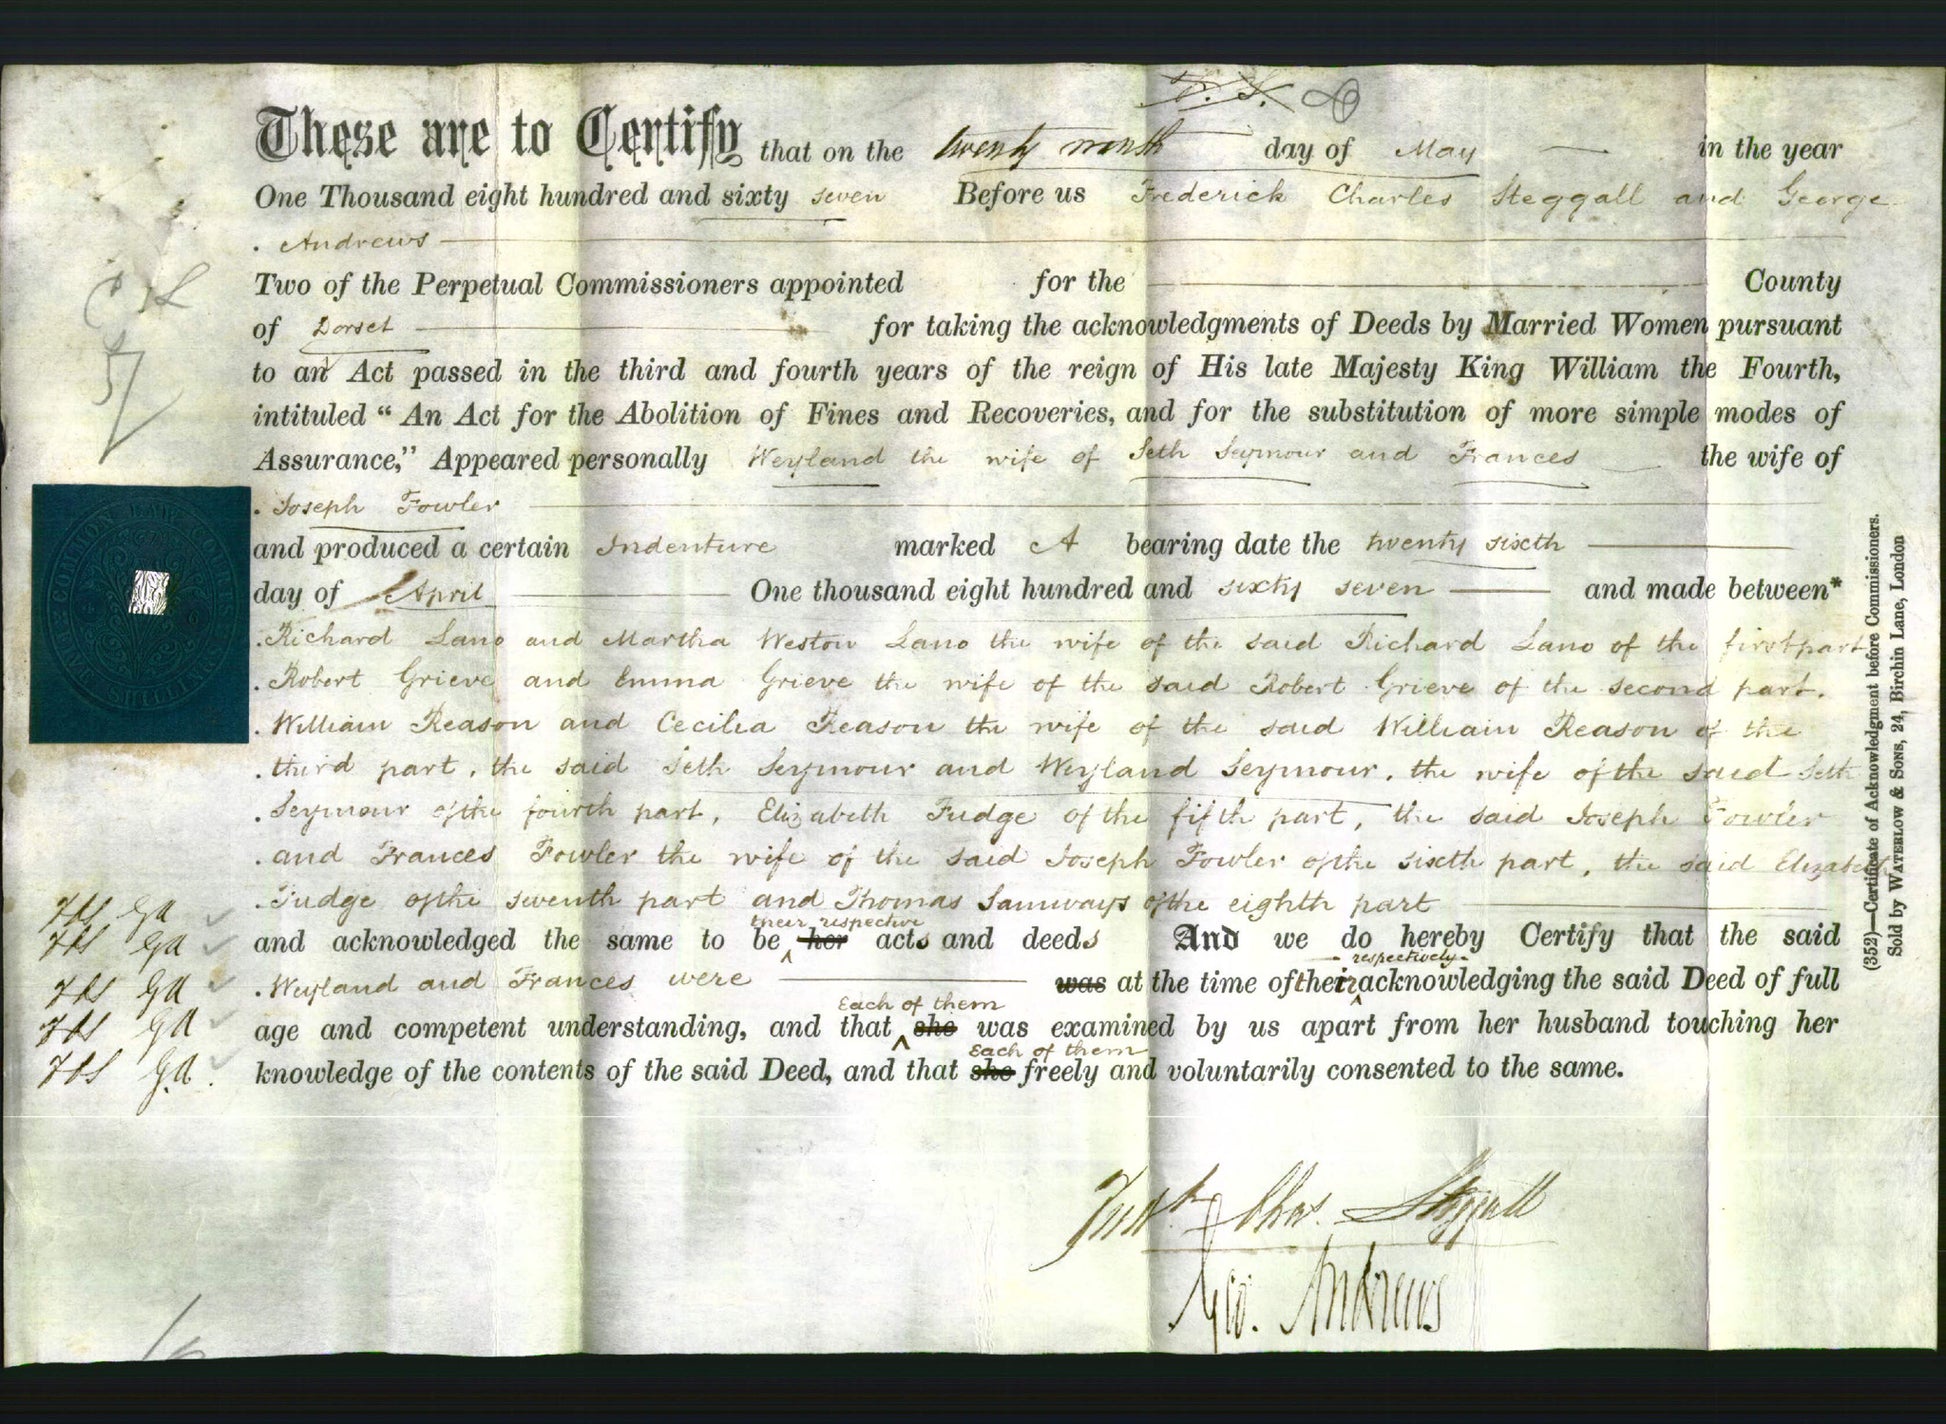 These are to Certify that on the twenty ninth day of May in the year
One Thousand eight hundred and sixty seven Before us Frederick Charles Steggall and George
Andrews
Two of the Perpetual Commissioners appointed for the County
of Dorset for taking the acknowledgments of Deeds by Married Women pursuant
to an Act passed in the third and fourth years of the reign of His late Majesty King William the Fourth,
intituled “ An Act for the Abolition of Fines and Recoveries, and for the substitution of more simple modes of
Assurance,” Appeared personally Weyland the wife of Seth Seymour and Frances the wife of
Joseph Fowler
and produced a certain Indenture marked A bearing date the twenty sixth
day of April One thousand eight hundred and sixty seven and made between*
Richard Lano and Martha Weston Lano the wife of the said Richard Lano of the first part
Robert Grieve and Emma Grieve the wife of the said Robert Grieve of the second part.
William Reason and Cecilia Reason the wife of the said William Reason of the
third part, the said Seth Seymour and Weyland Seymour, the wife of the said Seth
Seymour of the fourth part, Elizabeth Fudge of the fifth part, the said Joseph Fowler
and Frances Fowler the wife of the said Joseph Fowler of the sixth part, the said Elizabeth
Fudge of the seventh part and Thomas Samways of the eighth part
FCS GA
their respective
and acknowledged the same to be her acts and deeds And we do hereby Certify that the said
FCS GA
respectively
Weyland and Frances were was at the time of their acknowledging the said Deed of full
FCS GA
Each of them
age and competent understanding, and that she was examined by us apart from her husband touching her
FCS GA
Each of them
knowledge of the contents of the said Deed, and that she freely and voluntarily consented to the same.
FCS GA.
Fredk Chas. Steggall
Geo. Andrews
(352)—Certificate of Acknowledgment before Commissioners.
Sold by WATERLOW & SONS, 24, Birchin Lane, London
COMMON LAW COURTS